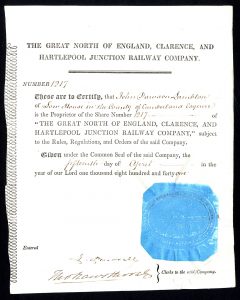 THE GREAT NORTH OF ENGLAND, CLARENCE, AND
HARTLEPOOL JUNCTION RAILWAY COMPANY.
NUMBER 1217
These are to Certify, that John
of House in the County of Cumberland Esquire
is the Proprietor of the Share Number 1217 of
"THE GREAT NORTH OF ENGLAND, CLARENCE, AND
HARTLEPOOL JUNCTION RAILWAY COMPANY," subject
to the Rules, Regulations, and Orders of the said Company.
Given under the Common Seal of the said Company,
the fifteenth day of April in the
year of our Lord one thousand eight hundred and forty one
Entered
Clerks to the said Company.